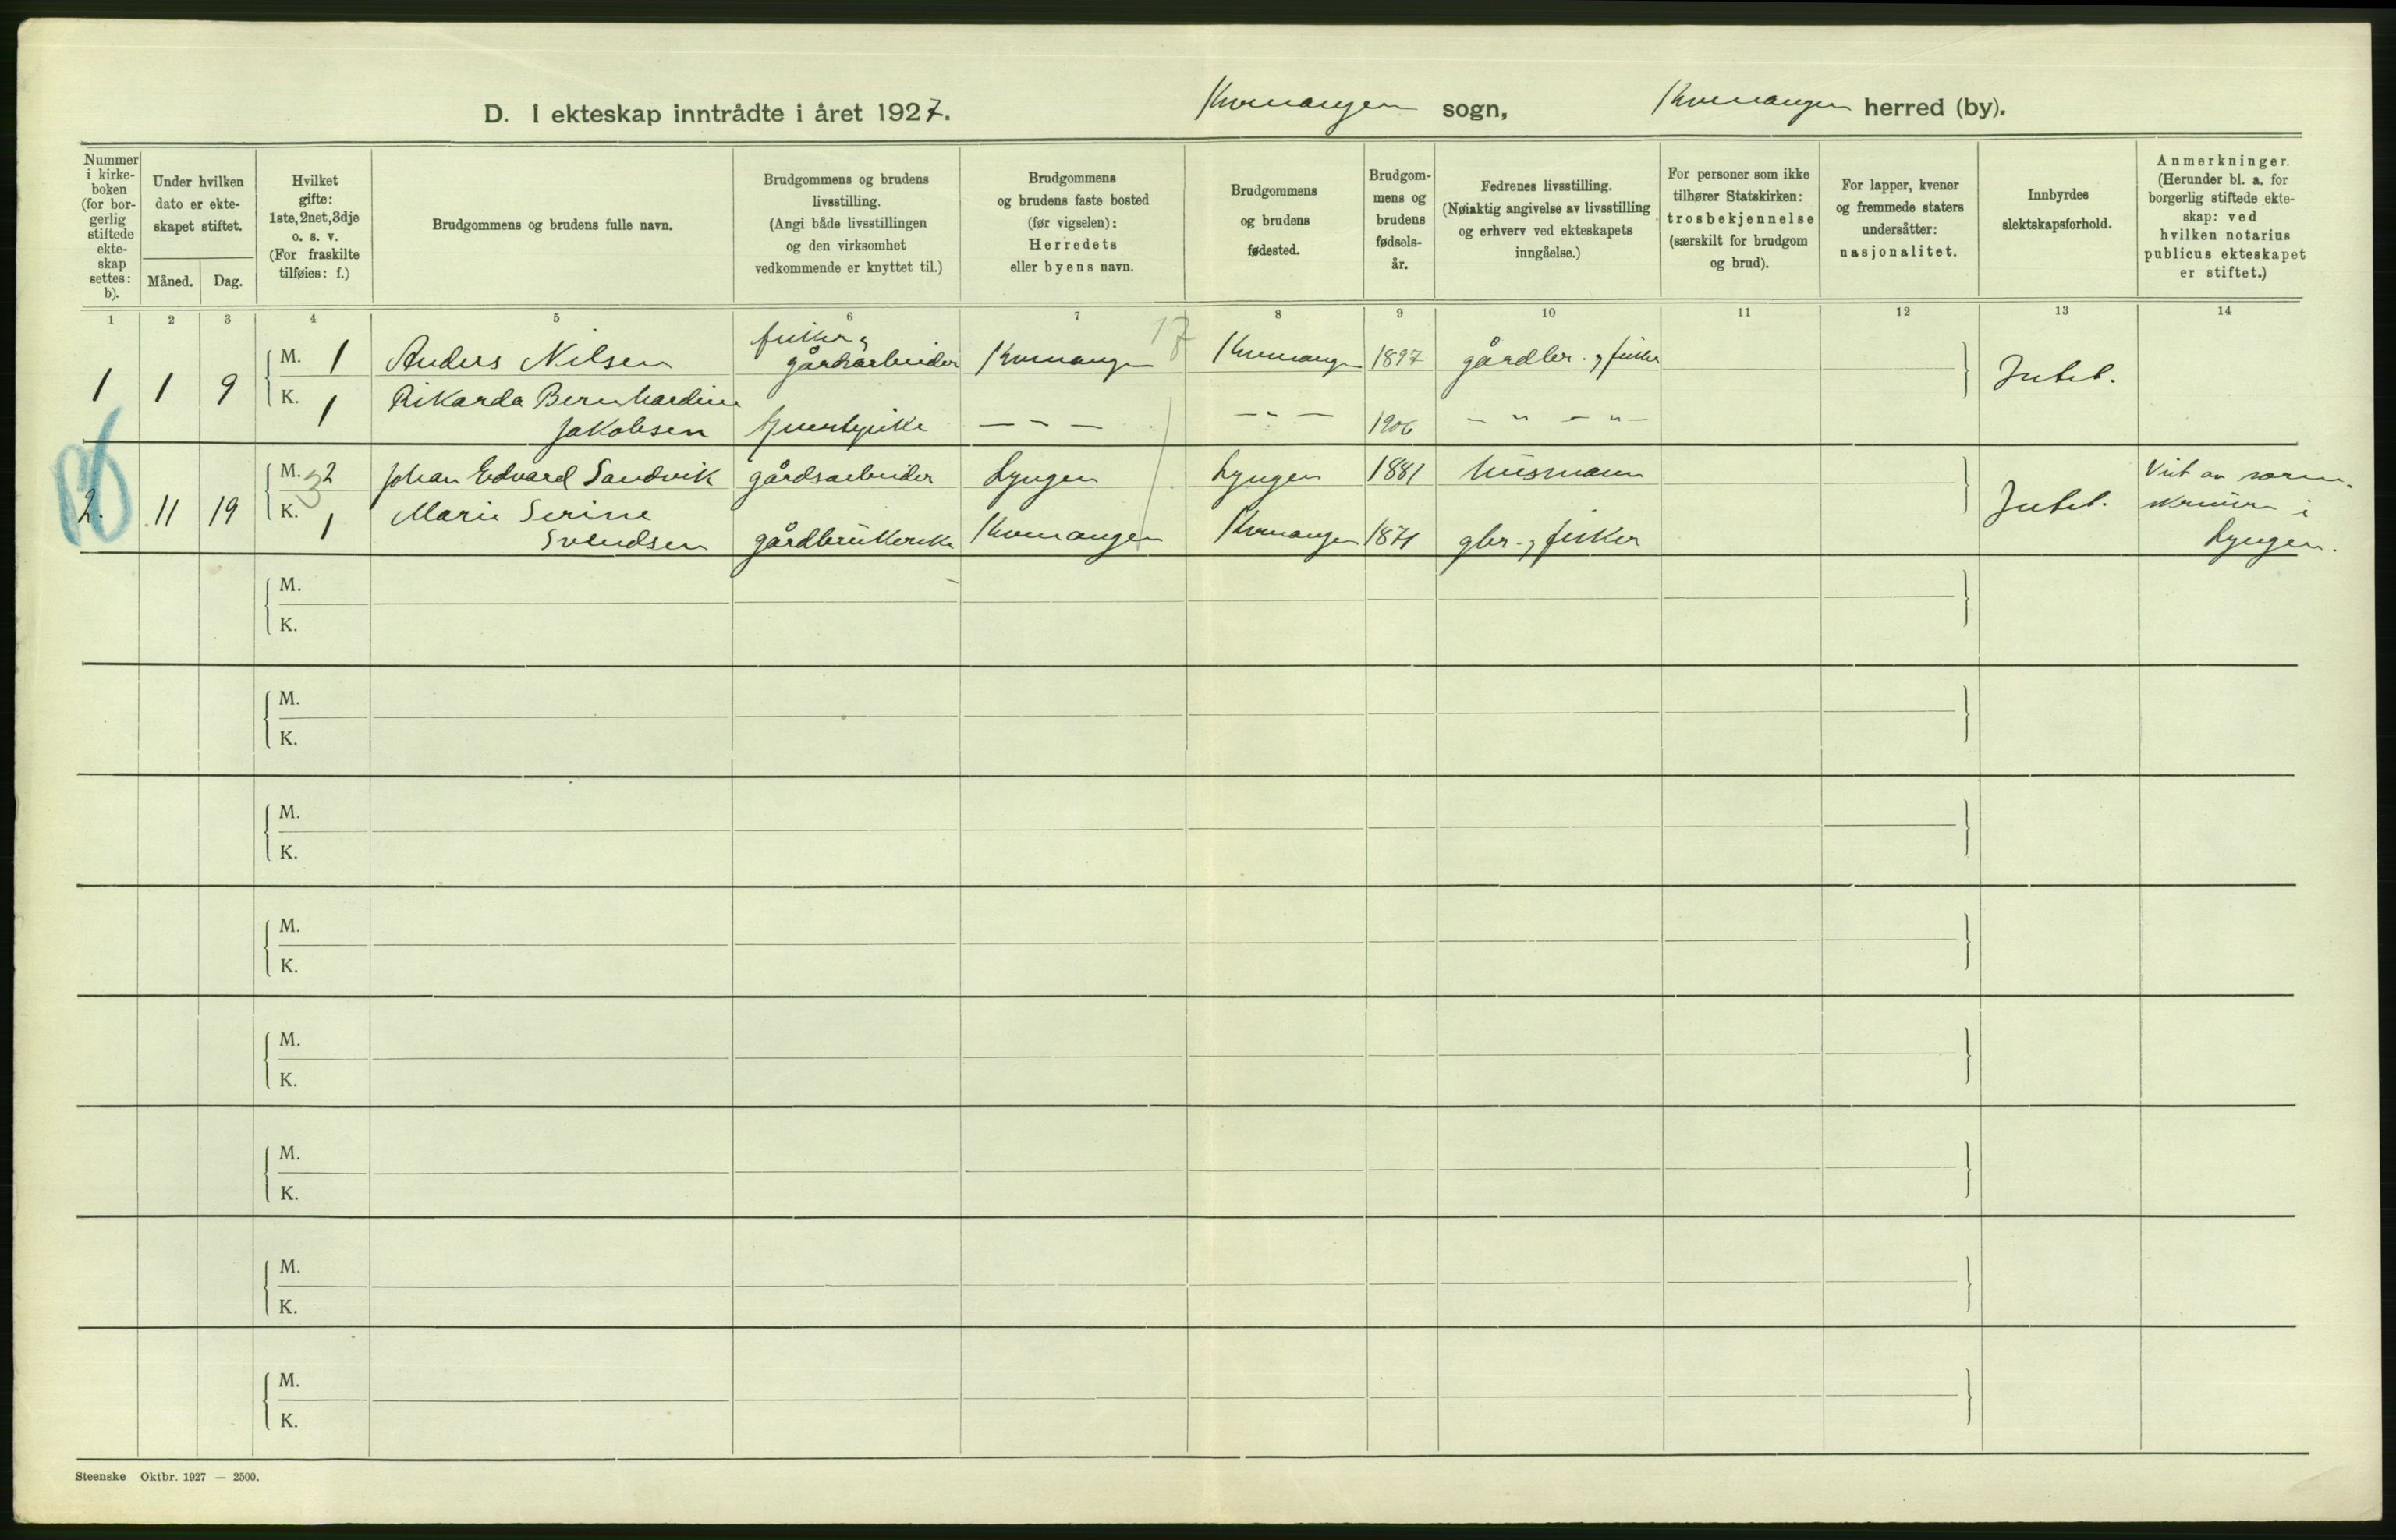 D. I ekteskap inntrådte i året 1927. Kvænangen sogn, Kvænangen herred (by).
Nummer i kirke-boken (for bor-gerlig stiftede ekte-skap settes: b).
Under hvilken dato er ekte-skapet stiftet.
Måned. Dag.
Hvilket gifte: 1ste, 2net, 3dje o. s. v. (For fraskilte tilføies: f.)
Brudgommens og brudens fulle navn.
Brudgommens og brudens livsstilling. (Angi både livsstillingen og den virksomhet vedkommende er knyttet til.)
Brudgommens og brudens faste bosted (før vigselen): Herredets eller byens navn.
Brudgommens og brudens fødested.
Brudgom-mens og brudens fødsels-år.
Fedrenes livsstilling. (Nøiaktig angivelse av livsstilling og erhverv ved ekteskapets inngåelse.)
For personer som ikke tilhører Statskirken: trosbekjennelse (særskilt for brudgom og brud).
For lapper, kvener og fremmede staters undersåtter: nasjonalitet.
Innbyrdes slektskapsforhold.
Anmerkninger. (Herunder bl. a. for borgerlig stiftede ekte-skap: ved hvilken notarius publicus ekteskapet er stiftet.)
1 2 3 4 5 6 7 8 9 10 11 12 13 14
17
fisker &
1 1 9 M. 1 Anders Nilsen gårdsarbeider Kvænangen Kvænangen 1897 gårdbr. & fisker Intet.
K. 1 Rikarda Bernhardine
Jakobsen tjenestepike — " — — " — 1906 — " — " —
2. 11 19 M. 2 Johan Edvard Sandvik gårdsarbeider Lyngen Lyngen 1881 husmann Intet. Viet av soren-
3
K. 1 Marie Serine skriveren i
Svendsen gårdbrukerske Kvænangen Kvænangen 1871 gbr. & fisker Lyngen.
M.
K.
M.
K.
M.
K.
M.
K.
M.
K.
M.
K.
M.
K.
M.
K.
Steenske Oktbr. 1927 — 2500.